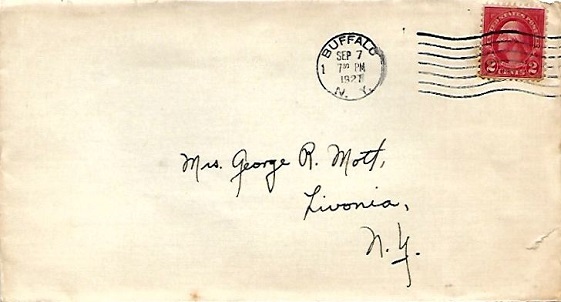 BUFFALO
SEP 7
1 7³⁰ PM
1927
N. Y.
2 CENTS 2
Mrs. George R. Mott,
Livonia,
N.Y.